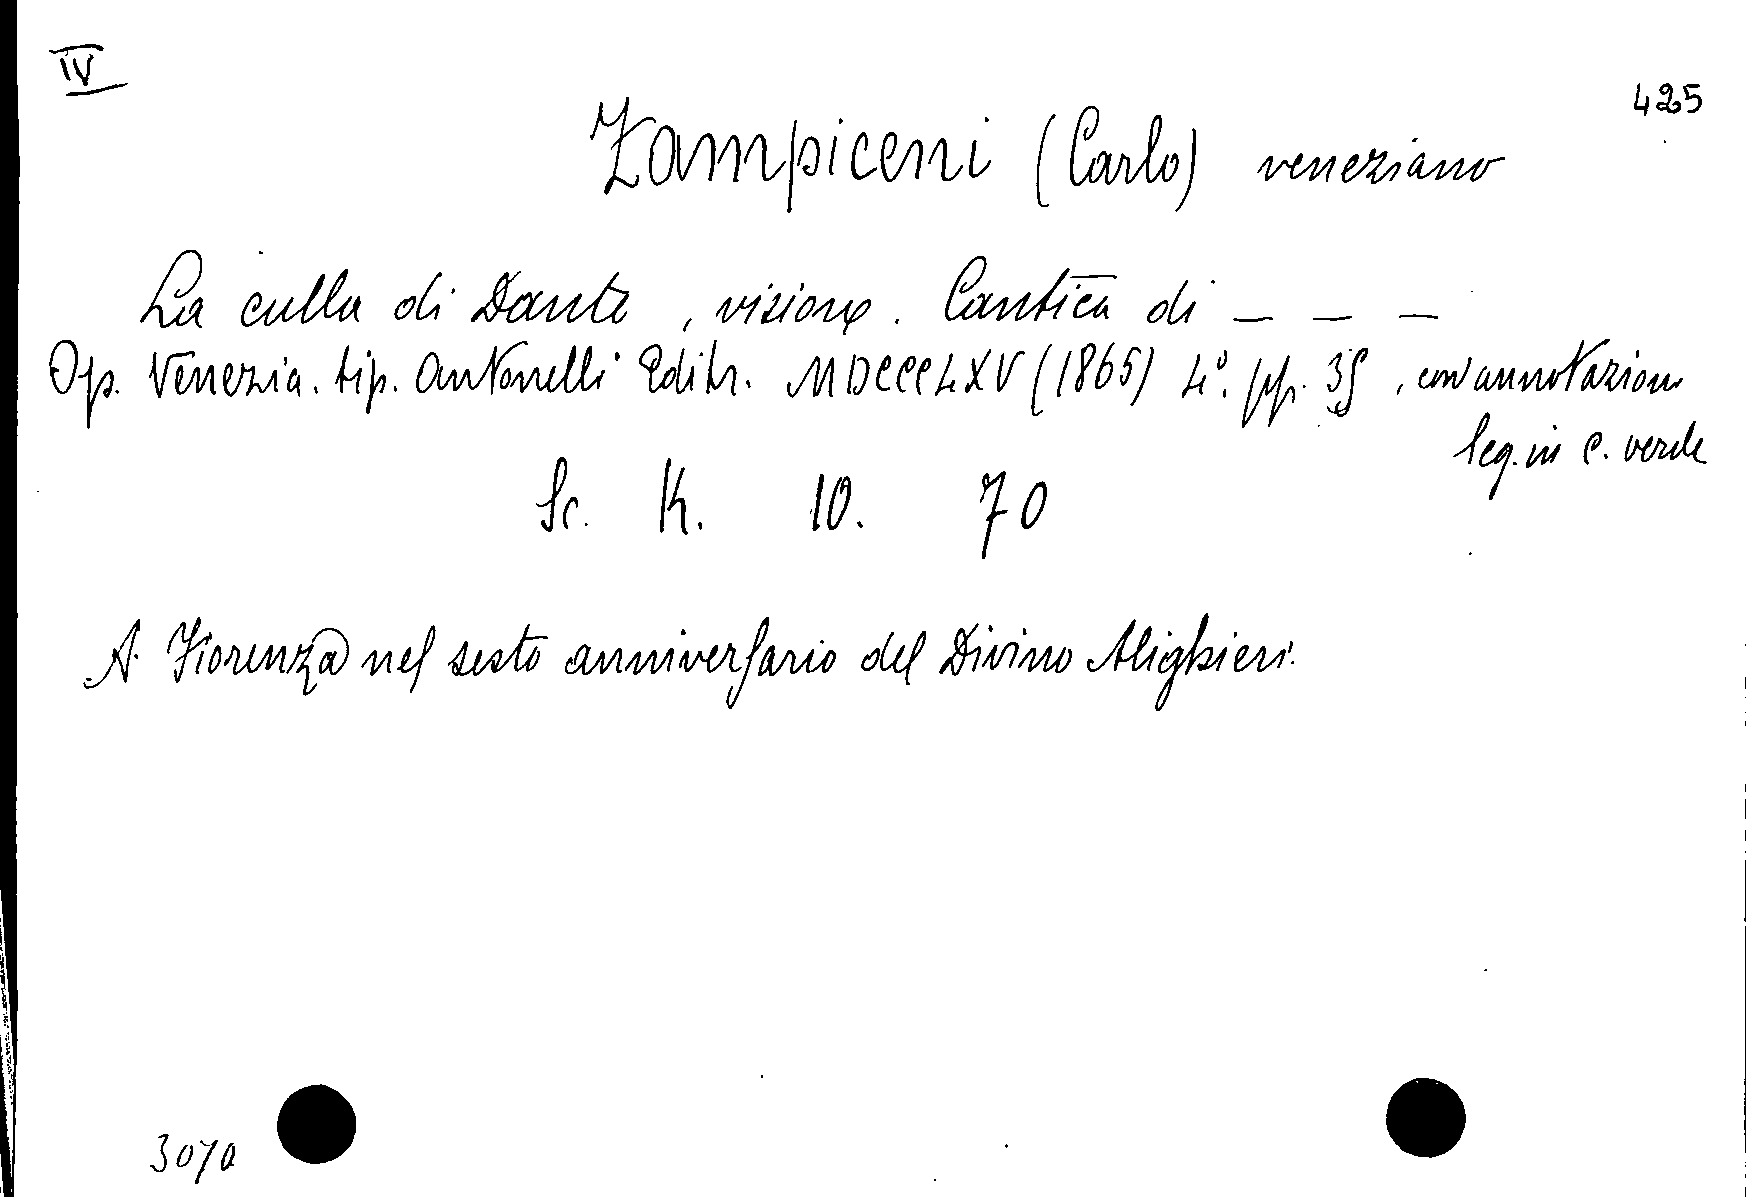 IV
425
Zampiceni (Carlo) veneziano
La culla di Dante, visione. Cantica di _ _ _
Op. Venezia. tip. Antonelli Editr. MDCCCLXV (1865) 4°. pp. 35, con annotazioni
leg. in c. verde
Sc. K. 10. 70
A. Fiorenza nel sesto anniversario del Divino Alighieri.
3070